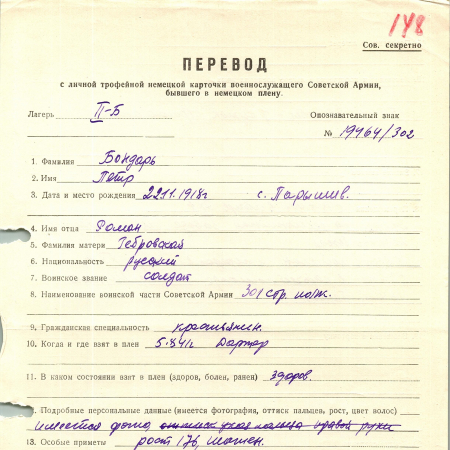 148
Сов. секретно
ПЕРЕВОД
с личной трофейной немецкой карточки военнослужащего Советской Армии,
бывшего в немецком плену.
Лагерь II-Б Опознавательный знак
№ 19464/302
1. Фамилия Бондарь
2. Имя Петр
3. Дата и место рождения 22.11.1918г с. Парышев.
4. Имя отца Роман
5. Фамилия матери Гебровская
6. Национальность русский
7. Воинское звание солдат
8. Наименование воинской части Советской Армии 301 стр.
9. Гражданская специальность крестьянин.
10. Когда и где взят в плен 5.8.41г
11. В каком состоянии взят в плен (здоров, болен, ранен) здоров.
2. Подробные персональные данные (имеется фотография, оттиск пальцев, рост, цвет волос)
имеется фото, пальца правой руки
13. Особые приметы рост 176,